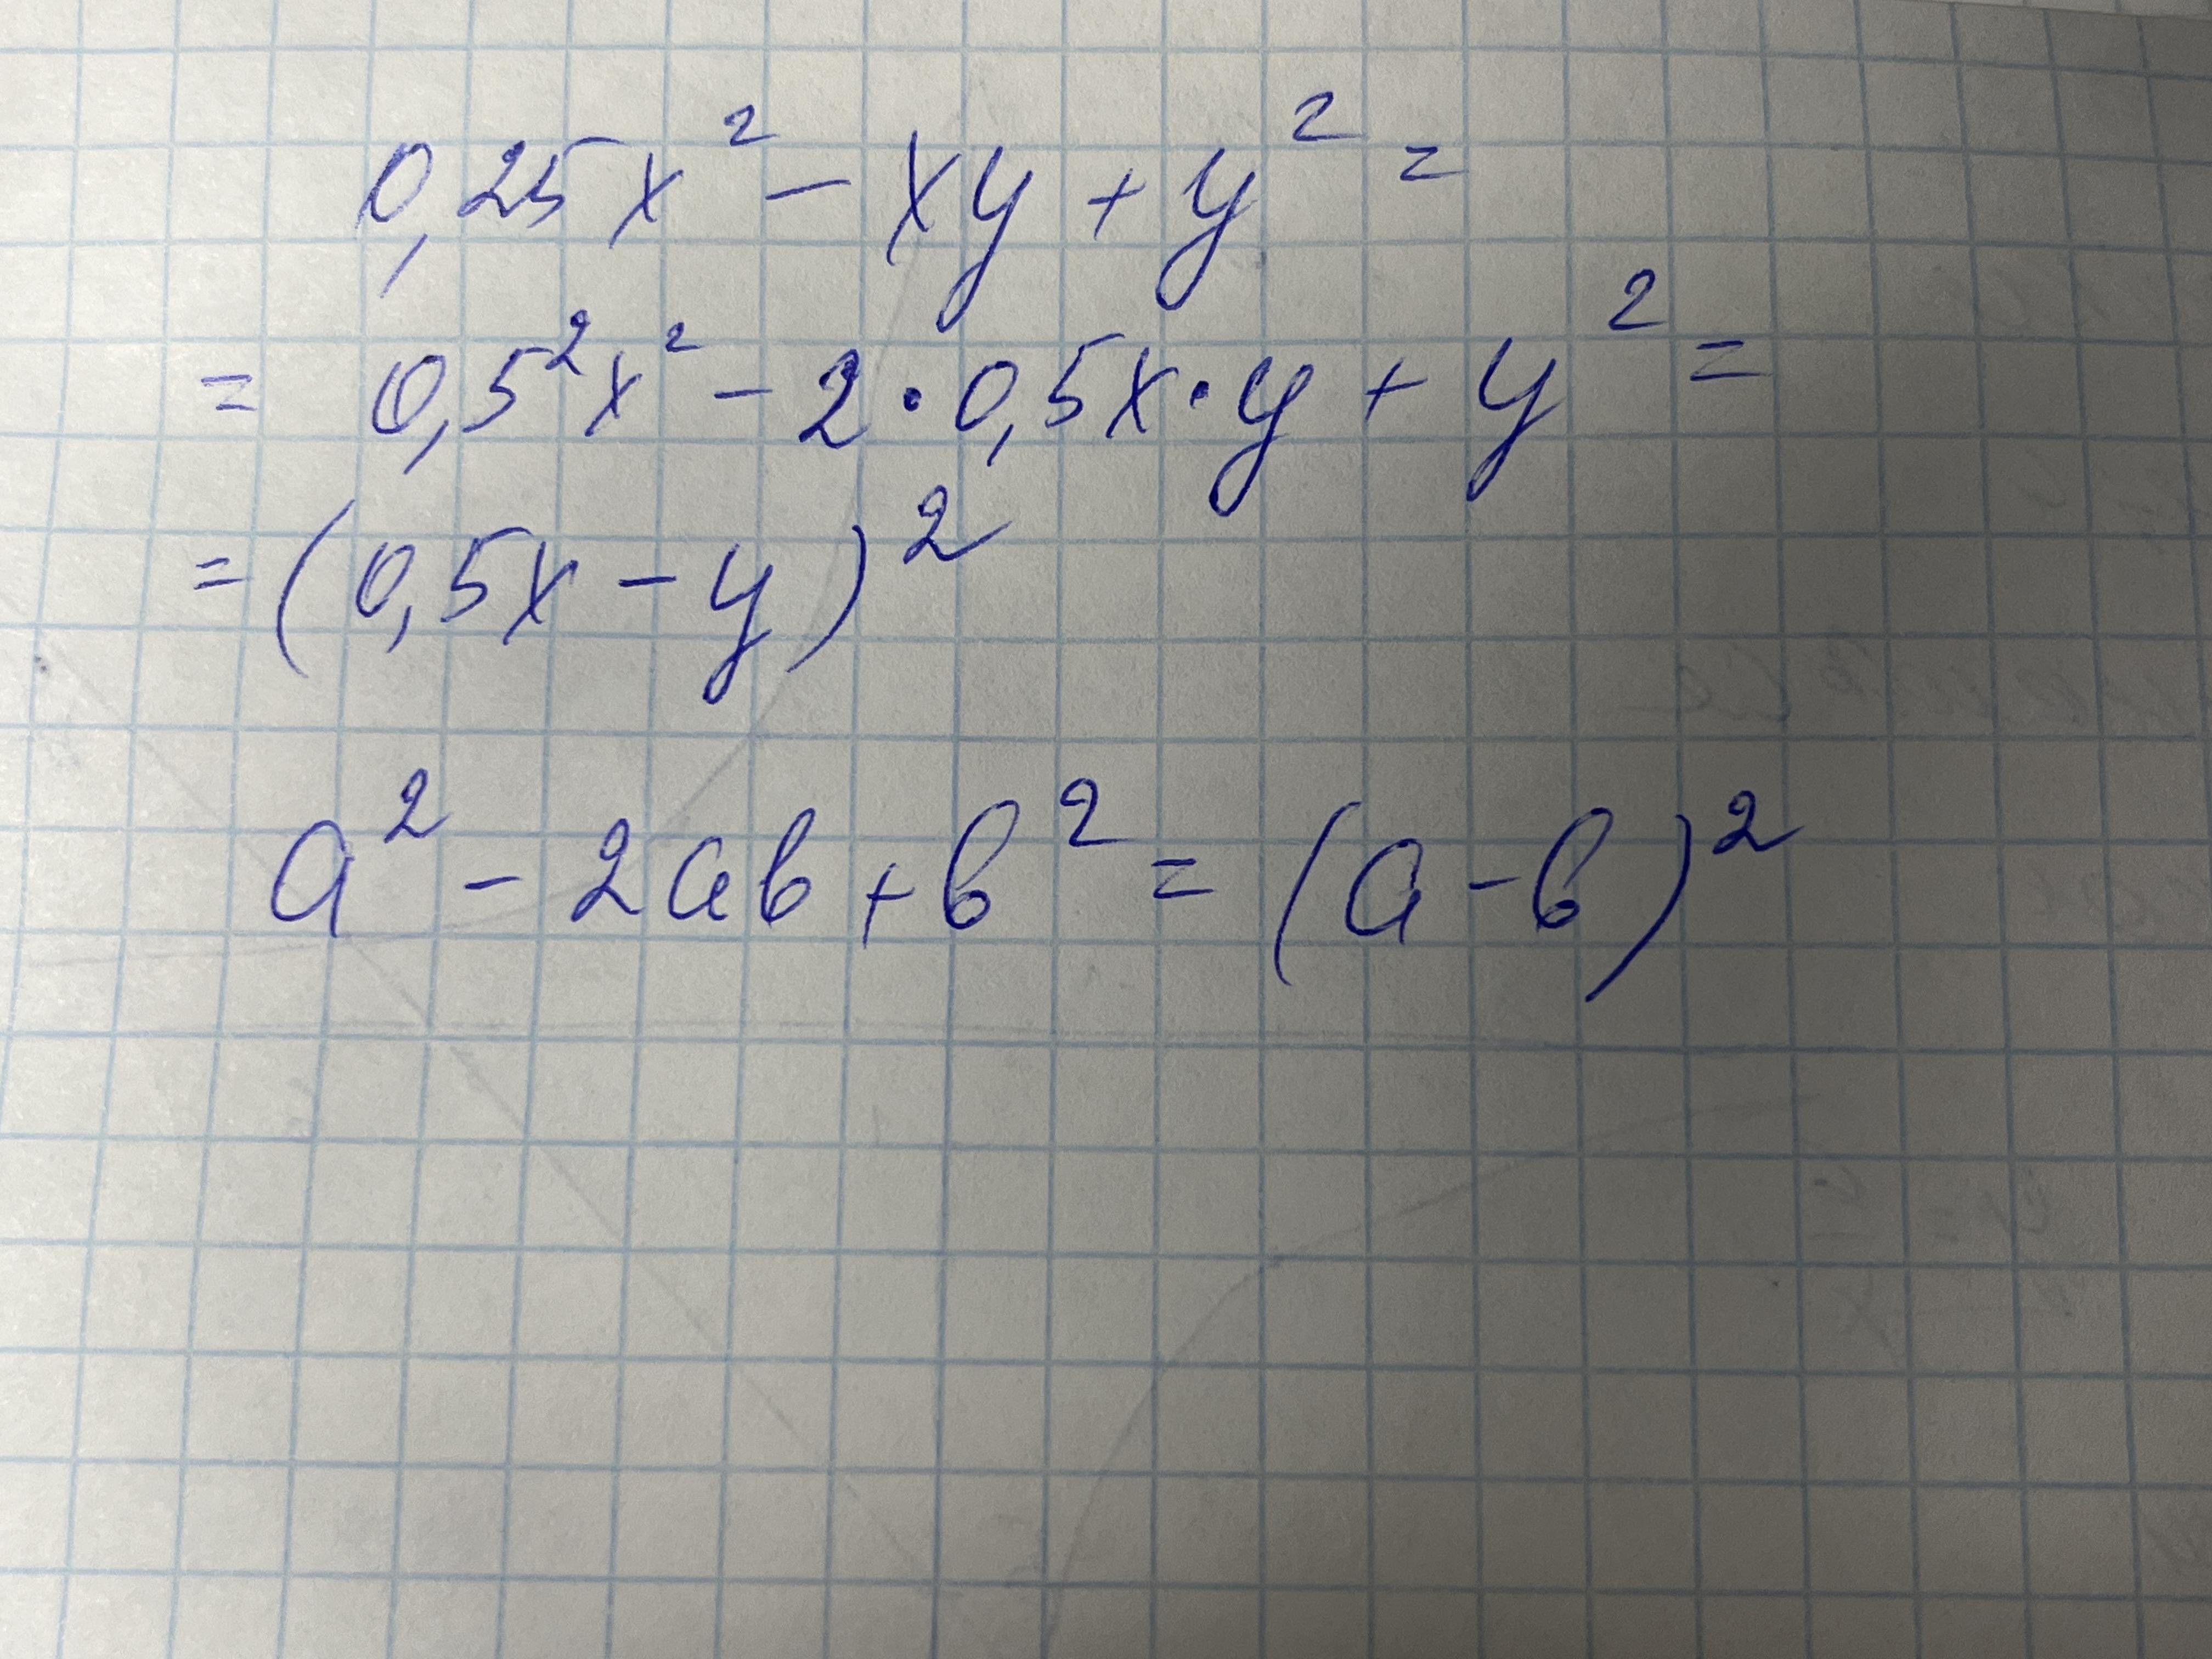 0,25x² - xy + y² =
= 0,5²x² - 2 · 0,5x · y + y² =
= (0,5x - y)²
a² - 2ab + b² = (a - b)²